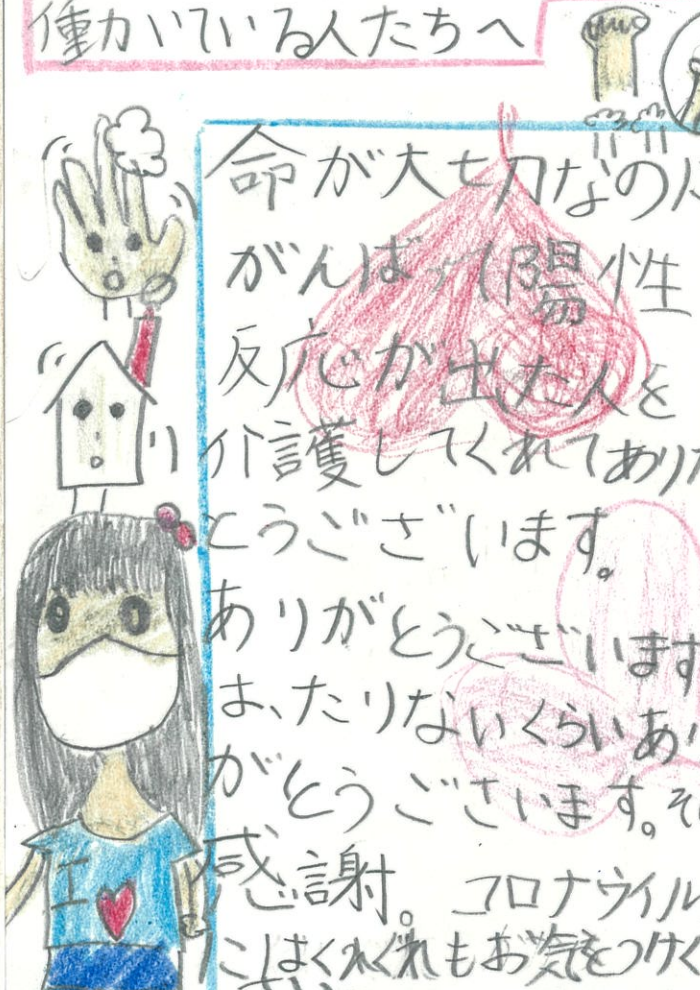 働かいている人たちへ
命が大切なの
がんばって陽性
反応が出た人を
介護してくれてあり
とうございます。
ありがとうございます
は、たりないくらいあ
がとうございます。そ
感謝。コロナウイル
にはくれぐれもお気をつけく
I